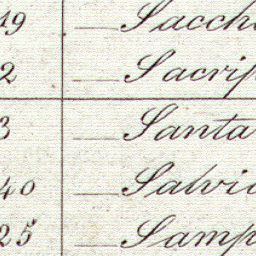 19 — Sacch
2 — Sacrip
3 — Santa
40 — Salvi
25 — Samp